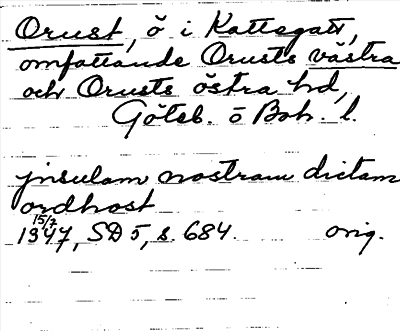 Orust, ö i Kattegatt,
omfattande Orusts västra
och Orusts östra hd,
Göteb. o Boh. l.
jnsulam nostram dictam
ordhost
15/7
1347, SD 5, s. 684. orig.